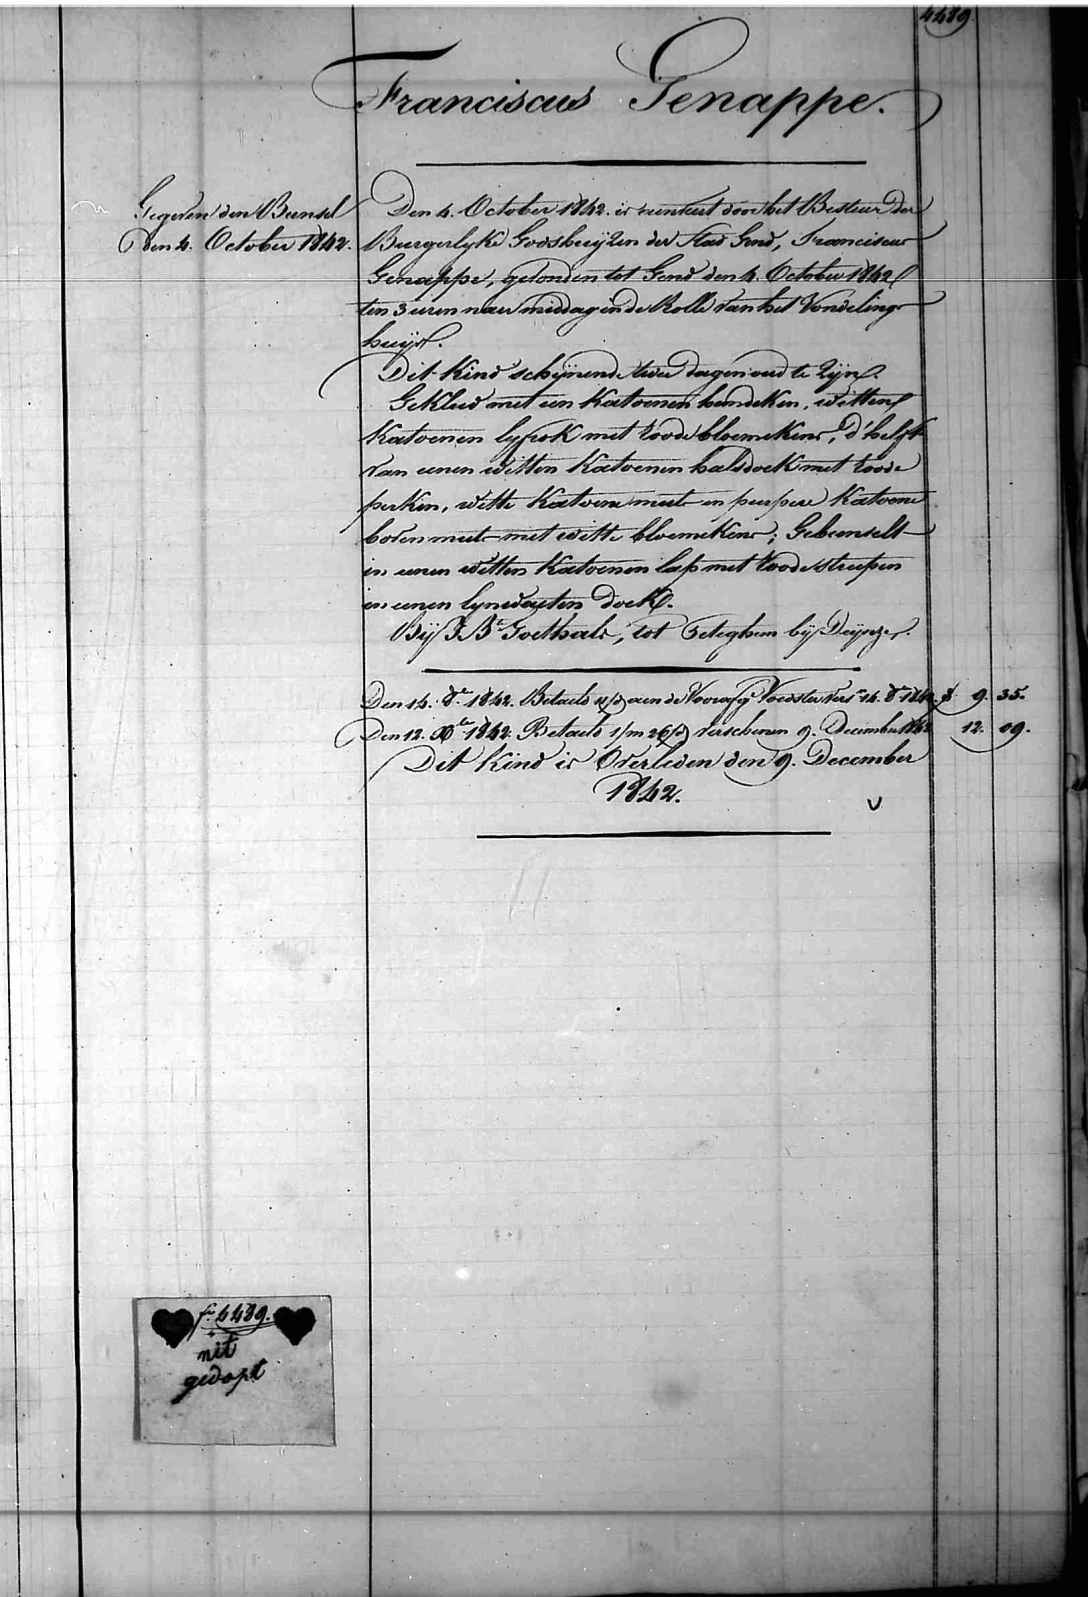 4489.
Franciscus Genappe.
Gegeven den Bunsel
den 4. October 1842.
Den 4. October 1842. is door het Bestuur der
Burgerlyke Godshuijzen der Stad Gend, Franciscus
Genappe, gevonden tot Gend den 4. October 1842
ten 3 uren naer middag in de Rolle van het Vondeling-
huijs.
Dit Kind schijnende twee dagen oud te zijn.
Gekleed met een Katoenen hemdeken, witten
Katoenen lyfrok met roode bloemekens, d'helft
van eenen witten Katoenen halsdoek met roode
perken, witte Katoene muts en purpere Katoene
boven muts met witte bloemekens; Gebunselt
in eenen witten Katoenen lap met roode streepen
en eenen lynwaeten doek.
Bij J. Bte Goethals, tot Peteghem bij Deijnze.
Den 14. 8er 1842. Betaeld aen de Voorafg. Voedster vers. 14. 8er 1842. f 9. 35.
Den 12. Xber 1842. Betaeld 1/m 26/d verschenen 9. December 1842 12. 09.
Dit Kind is Overleden den 9. December
1842.
fo. 4489.
nit
gedopt